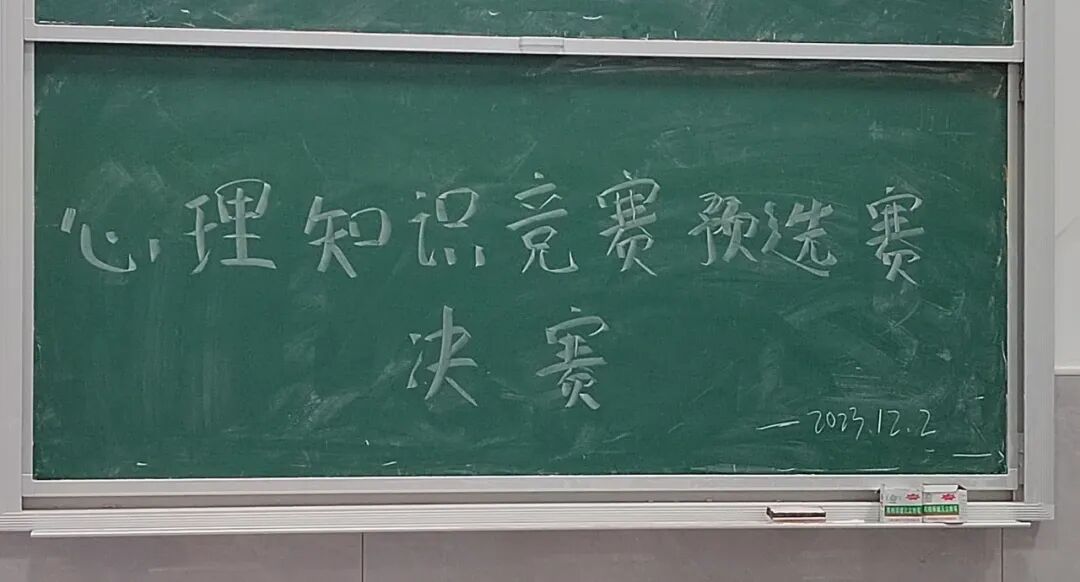 心理知识竞赛预选赛
决赛
—2023.12.2